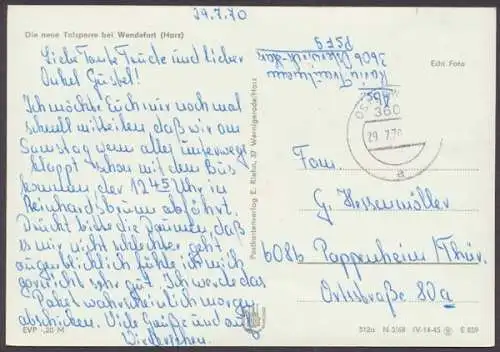 29.7.70
Die neue Talsperre bei Wendefurt (Harz)
Liebe Tante Trude und lieber
Onkel Güstel!
Ich möchte Euch nur noch mal
schnell mitteilen, daß wir am
Samstag wenn alles unterwegs
klappt schon mit dem Bus
kommen, der 12.45 Uhr in
Reinhardsbrunn abfährt.
Drückt bitte die Daumen, daß
es mir nicht schlechter geht
augenblicklich fühle ich mich
gesundheitl. sehr gut. Ich werde das
Paket wahrscheinlich morgen
abschicken. Viele Grüße und auf
Wiedersehen.
EVP -,20 M
Postkartenverlag E. Riehn, 37 Wernigerode/Harz
Abs.
Karin
3606
PSF 9
Echt Foto
360
29.7.70
a
Fam.
G. Hessenmöller
6086 Pappenheim/Thür.
Ortsstraße 80a
512a N 3/68 IV-14-45 E 829